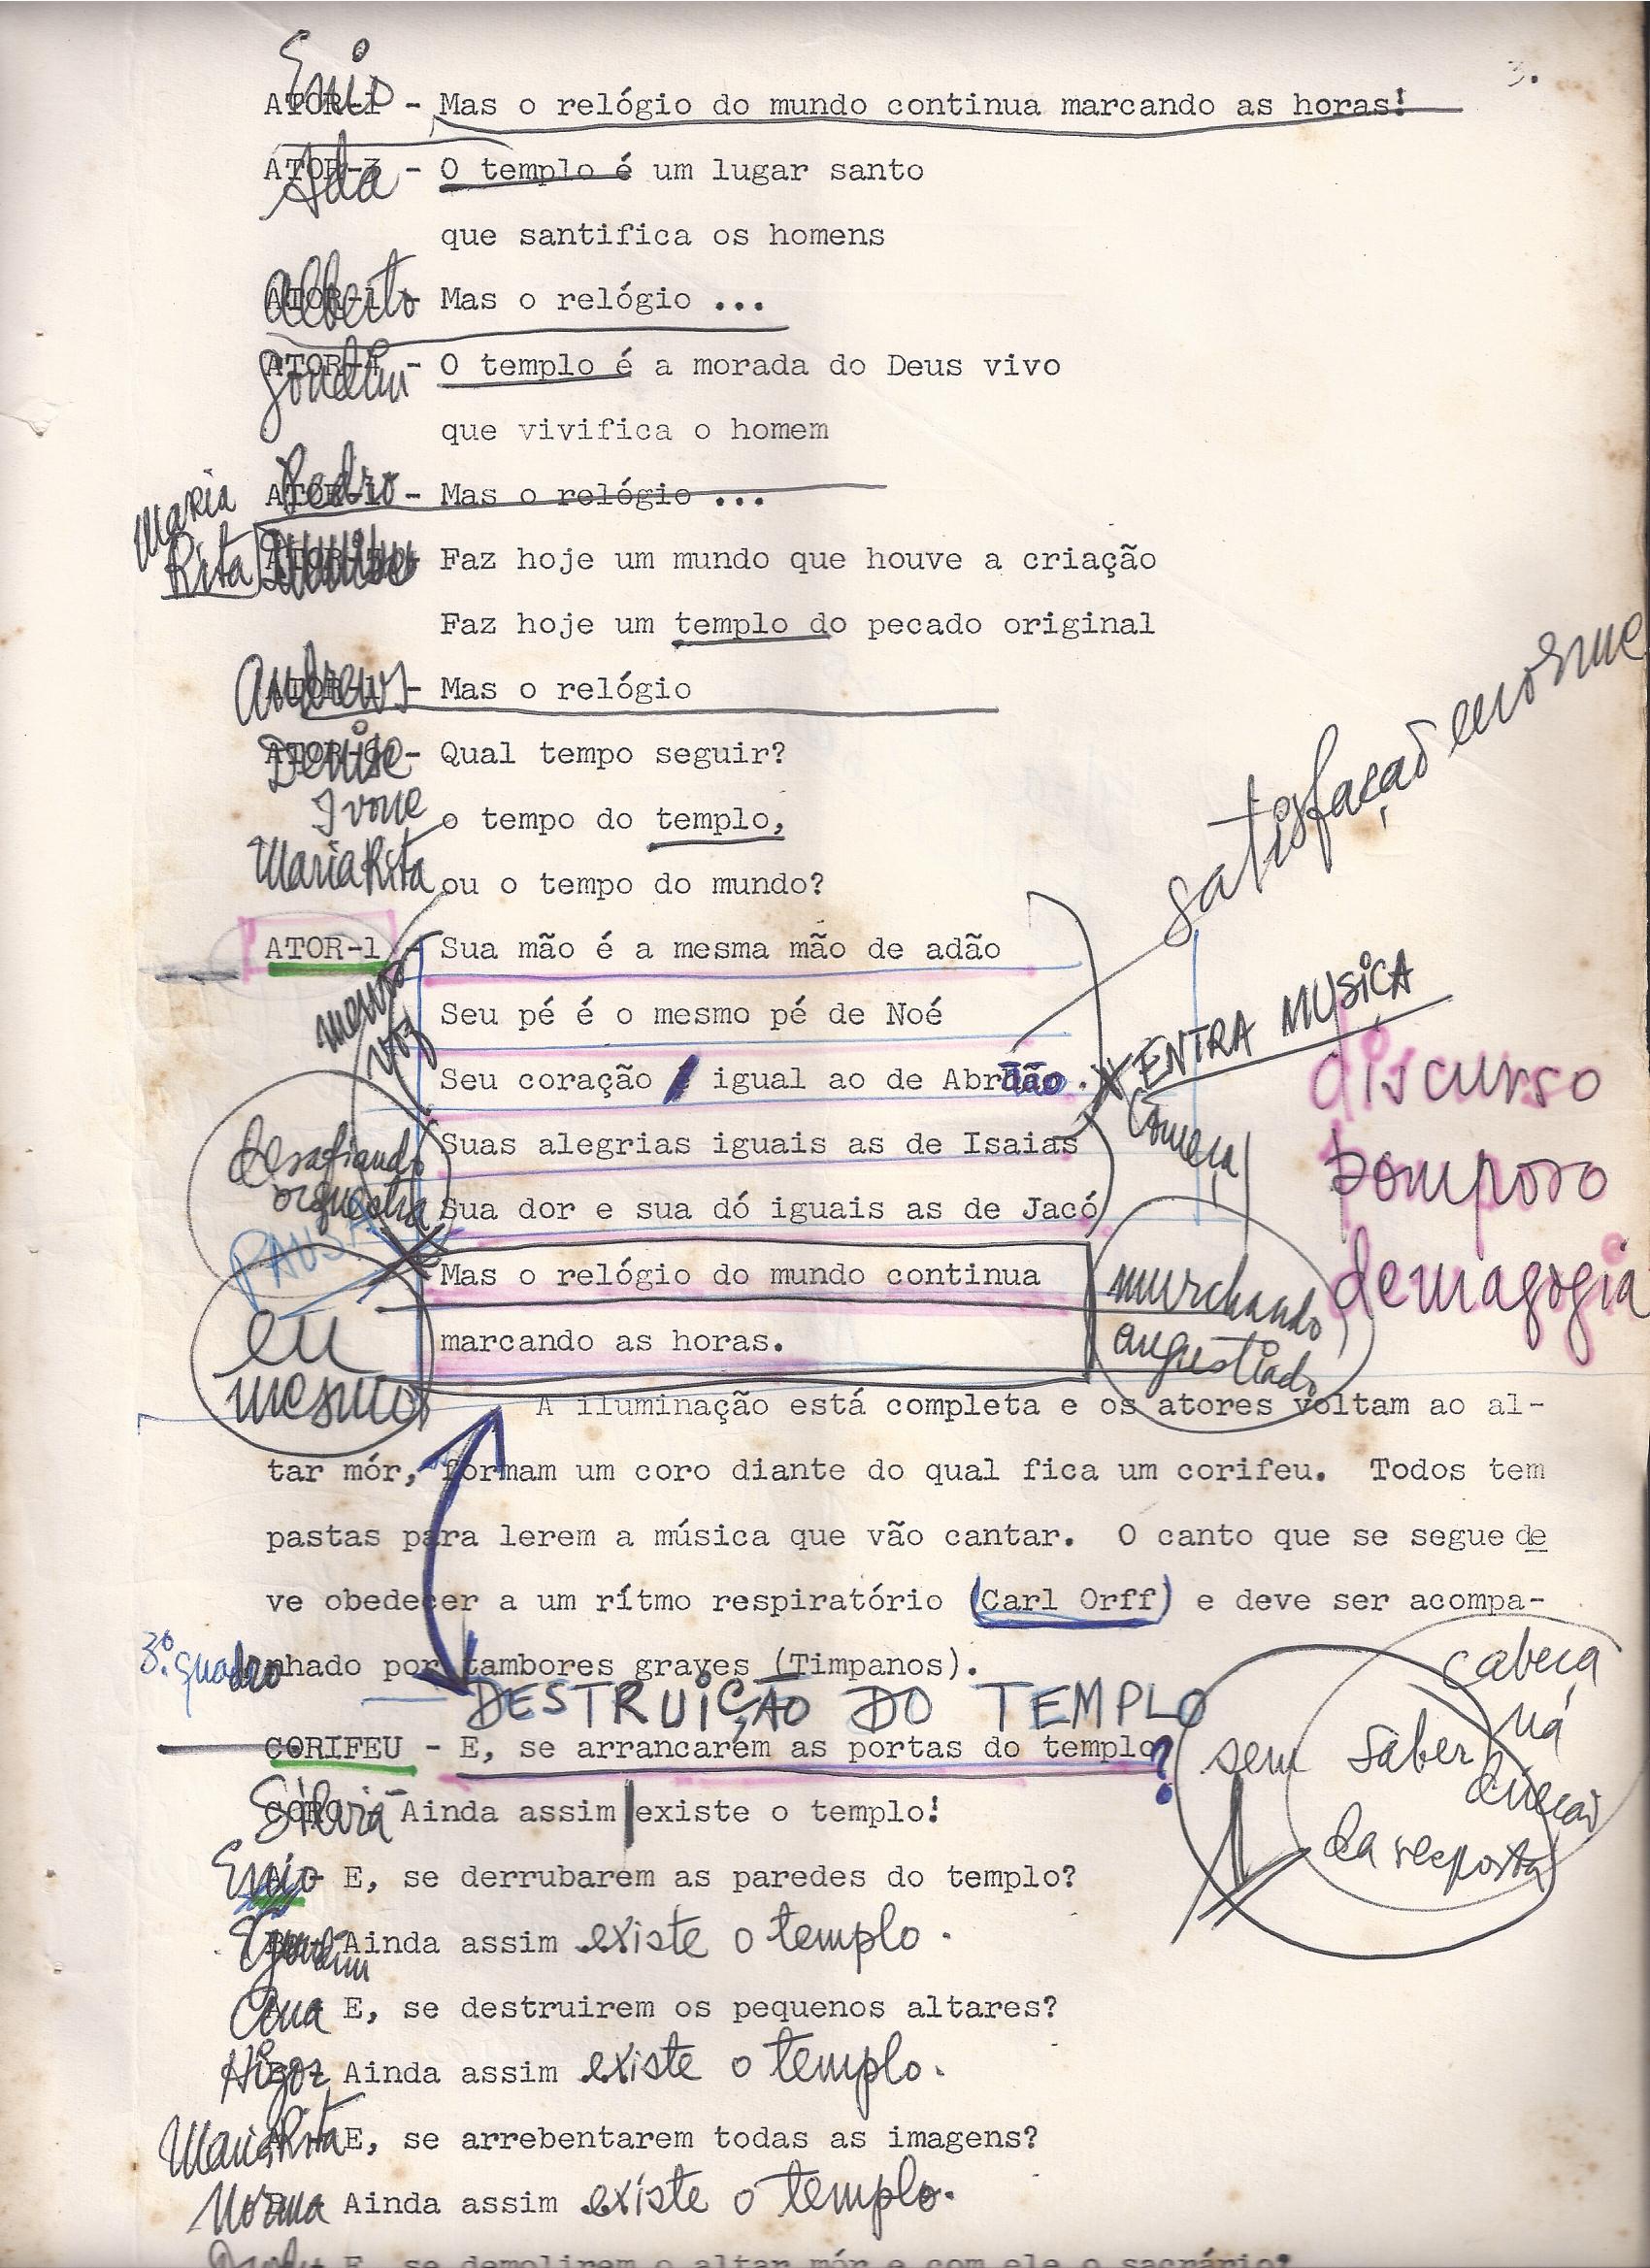 3.
Enio
ATOR-1 - Mas o relógio do mundo continua marcando as horas!
ATOR-3 - O templo é um lugar santo
Ada
que santifica os homens
Alberto
ATOR-1 - Mas o relógio ...
ATOR-4 - O templo é a morada do Deus vivo
que vivifica o homem
Maria Pedro
ATOR-1 - Mas o relógio ...
Rita Faz hoje um mundo que houve a criação
Faz hoje um templo do pecado original
Andrews
- Mas o relógio
Denise - Qual tempo seguir?
Ivone o tempo do templo,
Maria Rita ou o tempo do mundo?
satisfação enorme
ATOR-1 - Sua mão é a mesma mão de adão
mesma voz
Seu pé é o mesmo pé de Noé
ENTRA MUSICA
Seu coração igual ao de Abrãão.
começa
discurso
pomposo
demagogia
desafiando
orquestra
Suas alegrias iguais as de Isaias
Sua dor e sua dó iguais as de Jacó
PAUSA
Mas o relógio do mundo continua
murchando
angustiado
marcando as horas.
eu
mesmo
A iluminação está completa e os atores voltam ao al-
tar mór, formam um coro diante do qual fica um corifeu. Todos tem
pastas para lerem a música que vão cantar. O canto que se segue de
ve obedecer a um rítmo respiratório (Carl Orff) e deve ser acompa-
nhado por tambores graves (Timpanos).
3.º quadro
DESTRUIÇÃO DO TEMPLO
CORIFEU - E, se arrancarem as portas do templo?
cabeça
na
direção
sem saber
da resposta
Silvia - Ainda assim existe o templo!
Enio - E, se derrubarem as paredes do templo?
Ainda assim existe o templo.
Ana E, se destruirem os pequenos altares?
Higor Ainda assim existe o templo.
Maria Rita E, se arrebentarem todas as imagens?
Norma Ainda assim existe o templo.
E, se demolirem o altar mór e com ele o sacrário?